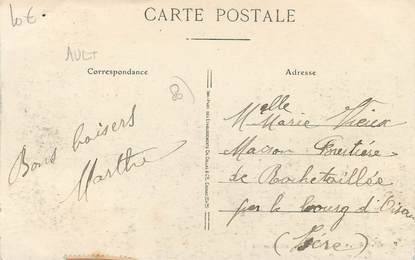 lot
AULT
CARTE POSTALE
Correspondance
Adresse
80
Bons baisers
Marthe
Melle Marie Vieux
Maison Forestière
de Rochetaillée
par le bourg d'Oisans
(Isère)